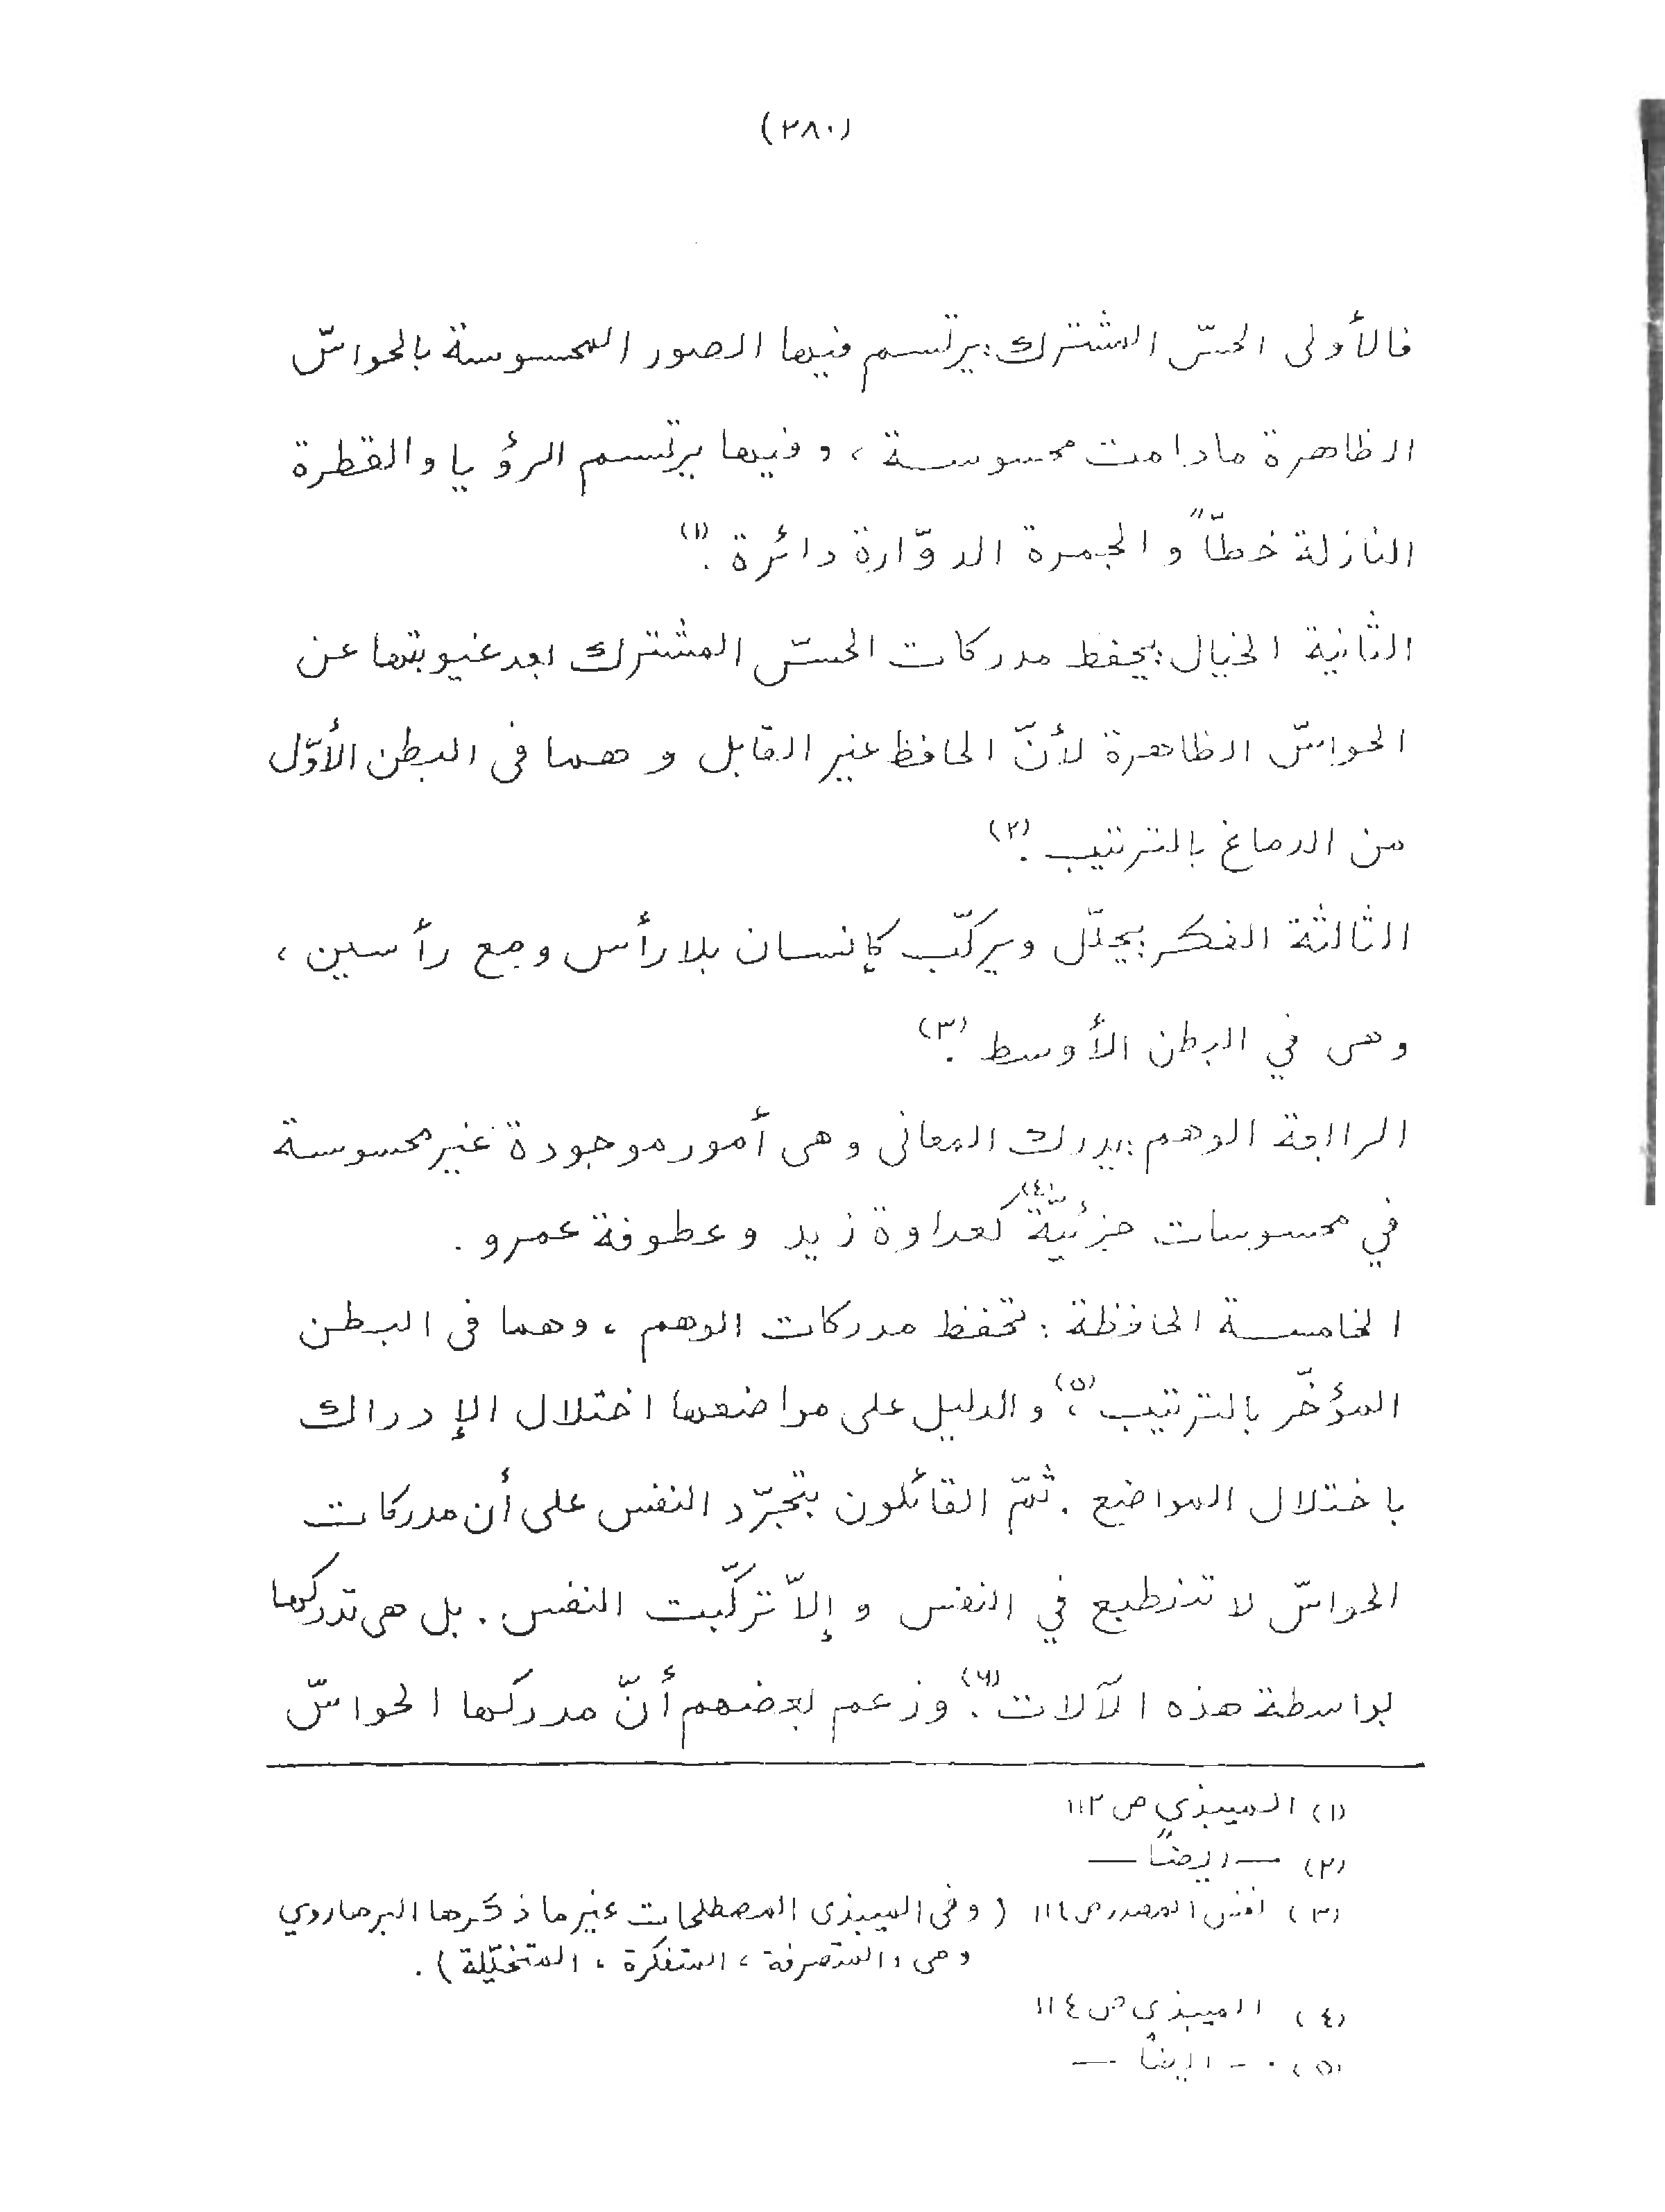 (٢٨٠)
فالأولى الحسّ المشترك: يرتسم فيها الصور المحسوسة بالحواسّ
الظاهرة مادامت محسوسة، وفيها يرتسم الرؤيا والقطرة
النازلة خطّاً والجمرة الدوّارة دائرة.(١)
الثانية الخيال: يحفظ مدركات الحسّ المشترك بعد غيوبتها عن
الحواسّ الظاهرة لأنّ الحافظ غير القابل وهما فى البطن الأوّل
من الدماغ بالترتيب.(٢)
الثالثة الفكر: يحلّل ويركّب كإنسان بلا رأس ومع رأسين،
وهى في البطن الأوسط.(٣)
الرابعة الوهم: يدرك المعانى وهى أمور موجودة غير محسوسة
في محسوسات جزئيّة(٤) كعداوة زيد وعطوفة عمرو.
الخامسة الحافظة: تحفظ مدركات الوهم، وهما فى البطن
المؤخّر بالترتيب(٥)، والدليل على مواضعها اختلال الإدراك
باختلال المواضع. ثمّ القائلون بتجرّد النفس على أن مدركات
الحواسّ لا تنطبع في النفس وإلاّ تركّبت النفس. بل هى تدركها
بواسطة هذه الآلات(٦). وزعم بعضهم أنّ مدركها الحواسّ
(١) الميبذي ص ١١٢
(٢) — ايضاً —
(٣) نفس المصدر ص ١١٤ (وفى الميبذى المصطلحات غير ما ذكرها البرماروي
وهى، المتصرفة، المتفكرة، المتخيّلة).
(٤) الميبذى ص ١١٤
(٥) - ايضاً —